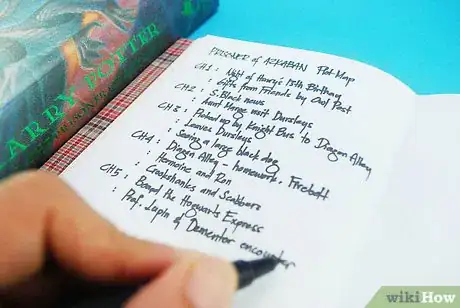 ARRY POTTER
PRISONER of AZKABAN Plot Map
CH1 : Night of Harry's 13th Birthday
: Gifts from Friends by Owl Post
CH2 : S. Black news
: Aunt Marge visit Dursleys
CH3 : Picked up by Knight Bus to Diagon Alley
: Leaves Dursleys
: Seeing a large black dog
CH4 : Diagon Alley - homework, Firebolt
: Hermoine and Ron
: Crookshanks and Scabbers
CH5 : Board the Hogwarts Express
: Prof. Lupin & Dementor encounter
wikiHow